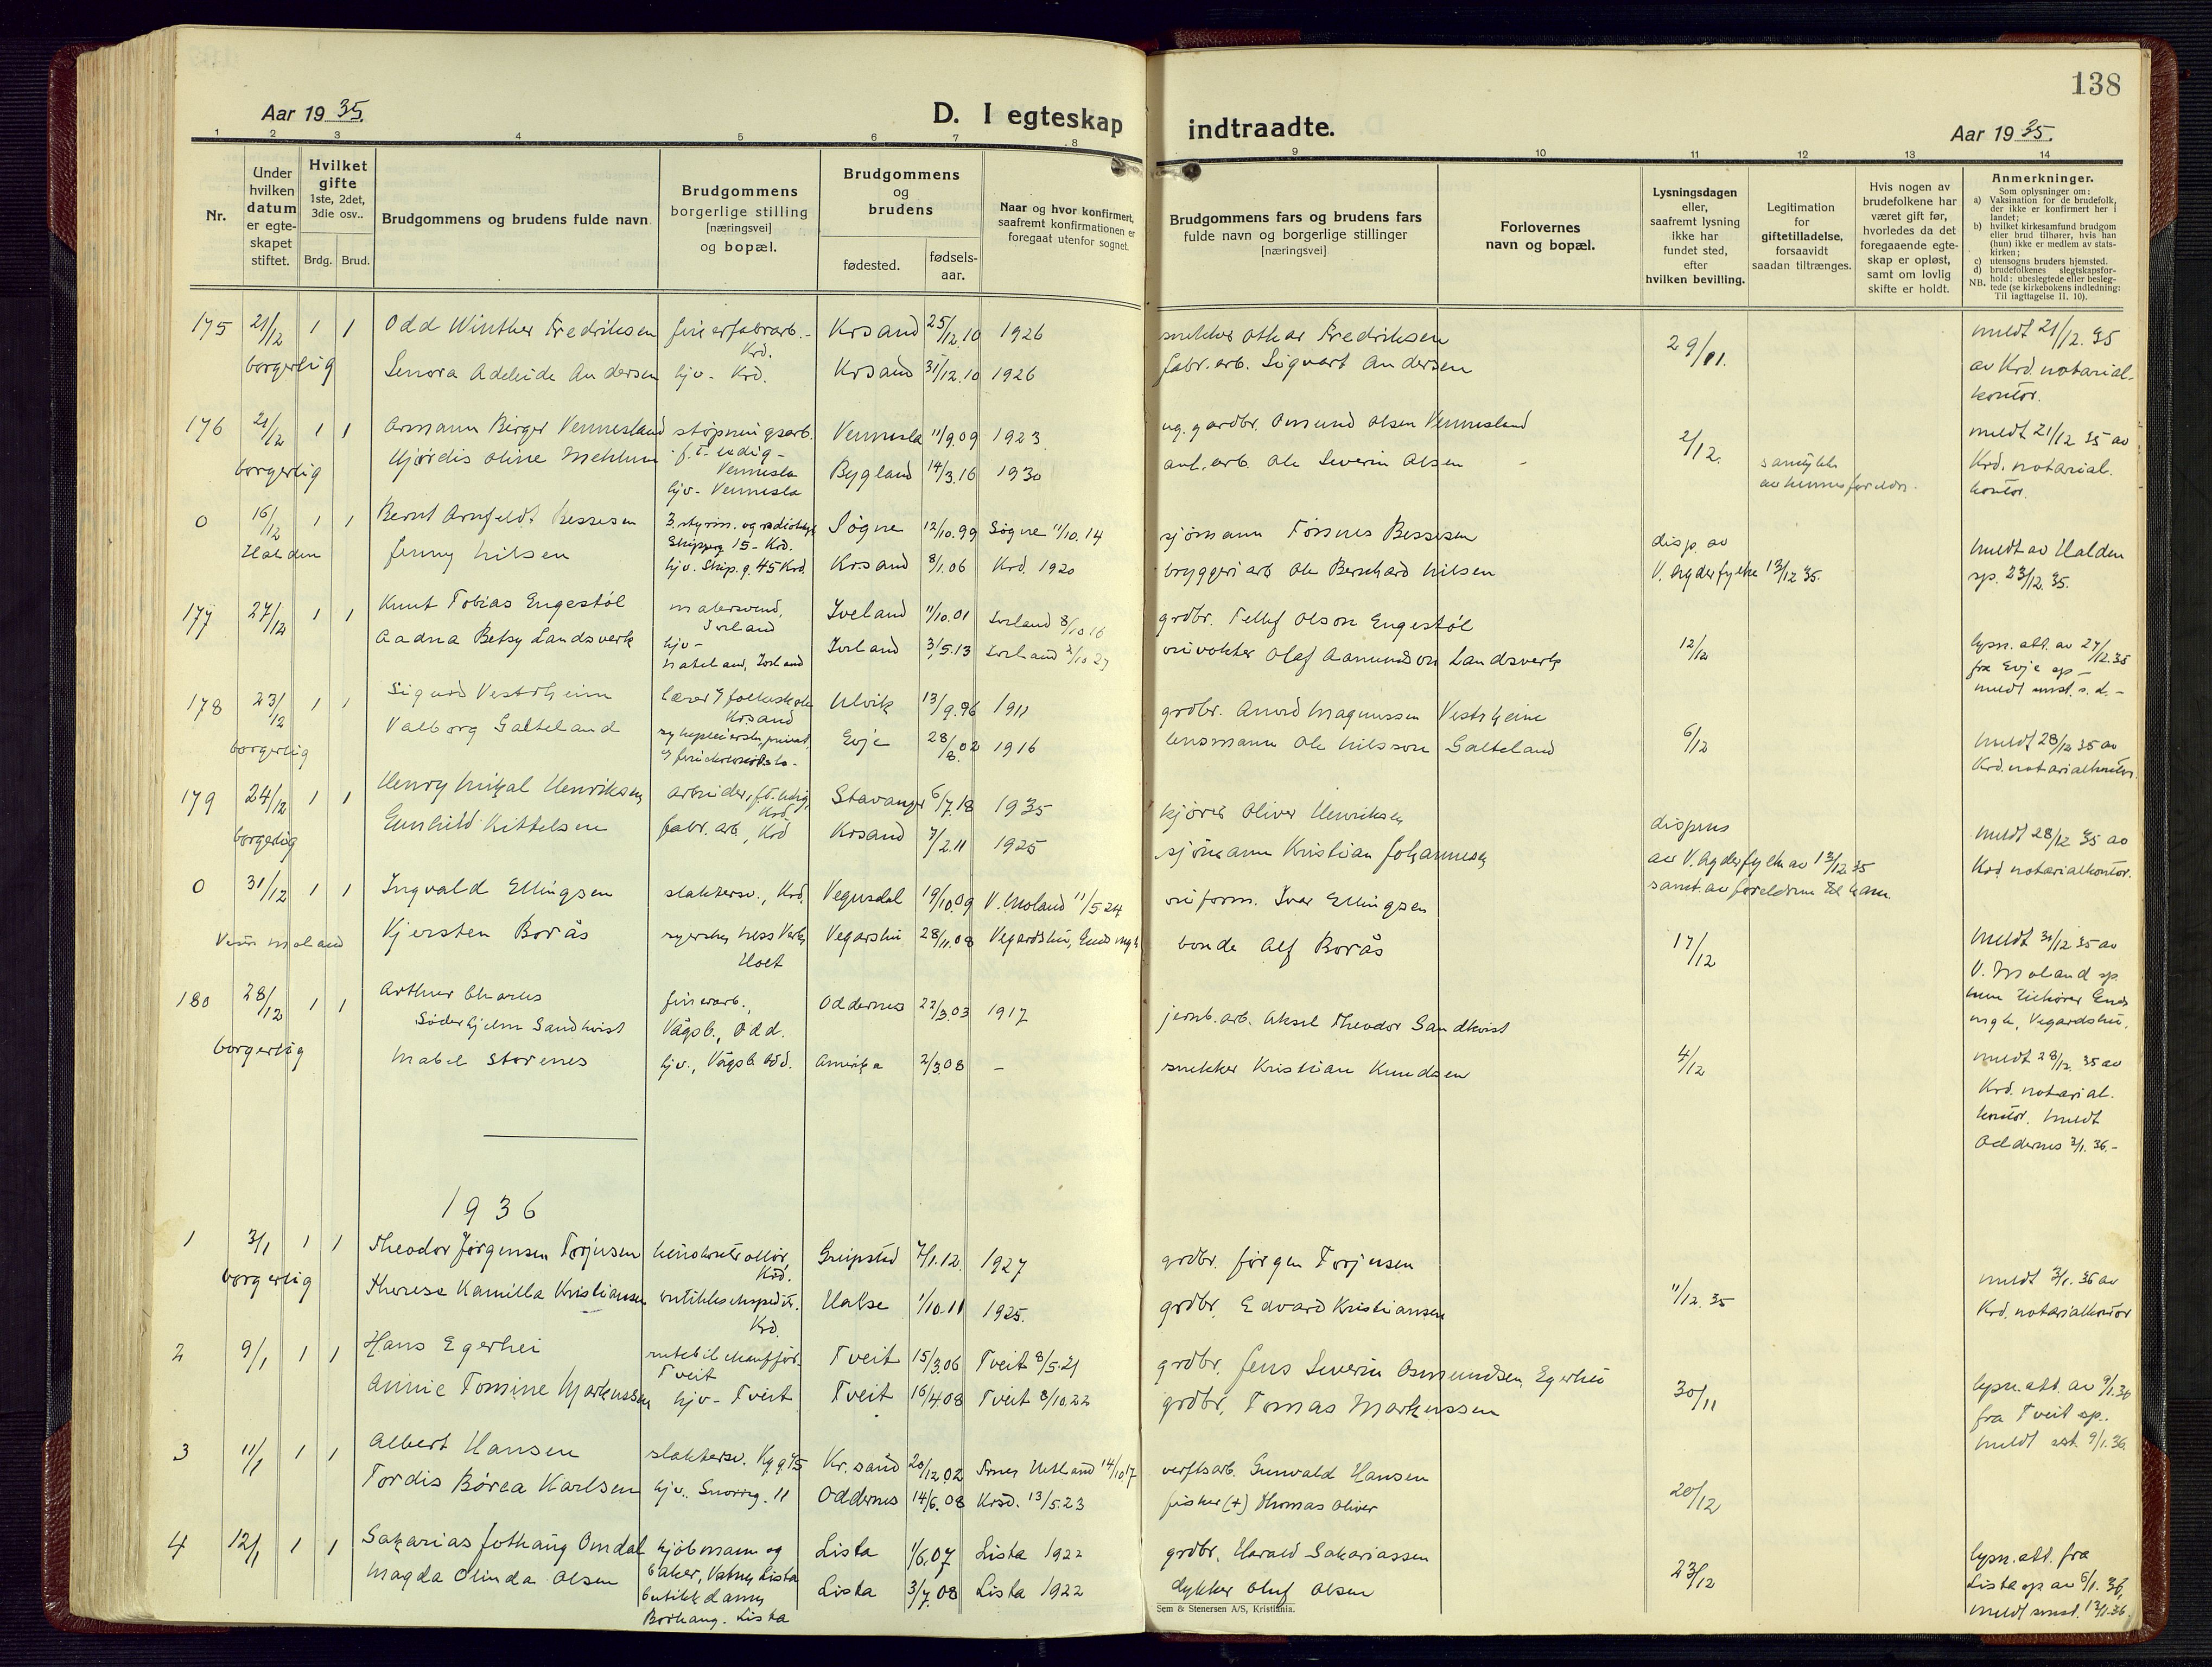 138
Aar 1935.
D. I egteskap indtraadte.
Aar 1935.
1 2 3 4 5 6 7 8 9 10 11 12 13 14
Nr.
Under hvilken datum er egteskapet stiftet.
Hvilket gifte 1ste, 2det, 3die osv..
Brdg. Brud.
Brudgommens og brudens fulde navn
Brudgommens borgerlige stilling [næringsvei] og bopæl.
Brudgommens og brudens
fødested. fødsels-aar.
Naar og hvor konfirmert, saafremt konfirmationen er foregaat utenfor sognet.
Brudgommens fars og brudens fars fulde navn og borgerlige stillinger [næringsvei]
Forlovernes navn og bopæl.
Lysningsdagen eller, saafremt lysning ikke har fundet sted, efter hvilken bevilling.
Legitimation for giftetilladelse, forsaavidt saadan tiltrænges.
Hvis nogen av brudefolkene har været gift før, hvorledes da det foregaaende egteskap er opløst, samt om lovlig skifte er holdt.
Anmerkninger.
Som oplysninger om:
a) Vaksination for de brudefolk, der ikke er konfirmert her i landet;
b) hvilket kirkesamfund brudgom eller brud tilhører, hvis han (hun) ikke er medlem av statskirken;
c) utensogns bruders hjemsted.
d) brudefolkenes slegtskapsforhold: ubeslegtede eller beslegtede (se kirkebokens indledning: Til iagttagelse II. 10).
NB.
175 21/12 1 1 Odd Winther Fredriksen finerfabrarb. - Krd. Krsand 25/12.10 1926 snekker Othar Fredriksen 29/11. meldt 21/12. 35
borgerlig Lenora Adeleide Andersen hjv. Krd. Krsand 31/12.10 1926 fabr. arb. Sigvart Andersen av Krd. notarial-
kontor.
176 21/12 1 1 Armann Birger Vennesland støpningsarb. Vennesla 11/9.09 1923 ug. gardbr. Omund Olsen Vennesland 2/12. meldt 21/12 35 av
borgerlig Hjørdis Oline Mehlum f.t. ledig - Vennesla Bygland 14/3.16 1930 anl. arb. Ole Severin Olsen samtykke Krd. notarial.
hjv - Vennesla kontor.
0 16/12 1 1 Bernt Arnfeldt Bessesen 3. styrm. og radioteleg. Søgne 12/10.99 Søgne 11/10.14 sjømann Tønnes Bessesen disp. av meldt av Halden
Halden Jenny Nilsen Skipperg 15 - Krd. hjv. Skip. g. 45 Krd. Krsand 8/1.06 Krd. 1920 bryggeriarb Ole Bernhard Nilsen V. Agderfylke 13/12 35. sp. 23/12. 35.
177 27/12 1 1 Knut Tobias Engestöl malersvend, Iveland Iveland 11/10.01 Iveland 8/10 16 grdbr. Tellef Olson Engestöl 12/12 lysn. att. av 27/12.35
Aadna Betsy Landsverk hjv - Nateland, Iveland Iveland 31/5.13 Iveland 2/10 27 Olaf Aamundson Landsverk fra Evje sp -
meldt smst. s. d. -
178 23/12 1 1 Sigurd Vestrheim lærer folkeskole Krsand Ulvik 13/9.96 1911 grdbr. Amund Magnussen Vestrheim 6/12 meldt 28/12 35 av
borgerlig Valborg Galteland Evje 28/8.02 1916 lensmann Ole Nilsson Galteland Krd. notarialkontor.
179 24/12 1 1 Henry Mikal Henriksen arbeider, f.t. ledig, Krd. Stavanger 6/7.18 1935 kjører Oliver Henriksen dispens meldt 28/12 35 av
borgerlig Gunhild Kittelsen fabr. arb, Krd Krsand 7/2.11 1925 sjömann Kristian Johannesen av V. Agderfylke av 13/12 35 Krd. notarialkontor.
samt. av foreldrene til ham.
0 31/12 1 1 Ingvald Ellingsen slaktersv., Krd. Vegusdal 19/10.09 V. Moland 11/5 24 Iver Ellingsen 17/12 meldt 31/12 35 av
Vestre Moland Kjersten Borås syerske, Ness Verk, Holt Vegarshei 28/11.08 Vegårdshei, Ends mgh bonde Alf Borås V. Moland sp.
hun tilhører Ends
mgh, Vegardshei.
180 28/12 1 1 Arthur Charles finerarb., Oddernes 22/3.03 1917 jernb. arb. Aksel Theodor Sandkvist 4/12 meldt 28/12. 35 av
Söderhjelm Sandkvist Vågsb., Odd. Krd. notarial.
borgerlig Mabel Storenes hjv., Vågsb. Odd. Amerika 2/3.08 - snekker Kristian Knudsen kontor. meldt
Oddernes 2/1. 36.-
1936
1 3/1 1 1 Theodor Jörgensen Torjusen Krd. Greipstad 7/1.12. 1927 grdbr. Jörgen Torjusen 11/12. 35 meldt 3/1. 36 av
borgerlig Therese Kamilla Kristiansen butikkekspeditr. Krd. Halse 1/10.11 1925. grdbr. Edvard Kristiansen Krd. notarialkontor
2 9/1 1 1 Hans Egerhei rutebilchauffør. Tveit Tveit 15/3.06 Tveit 8/5.21 grdbr. Jens Severin Osmundsen Egerhei 30/11 lysn. att. av 9/1.36
Annie Tomine Markussen hjv - Tveit Tveit 16/4.08 Tveit 8/10.22 grdbr. Tomas Markussen fra Tveit sp.
meldt sst. 9/1.36.
3 11/1 1 1 Albert Hansen slaktersv. Kg g 45 Kr.sand 20/12.02 14/10.17 verftsarb. Gunvald Hansen 20/12
Tordis Børea Karlsen hjv. Snorrig. 11 Oddernes 14/6.08 Krsd. 13/5.23 fisker (+) Thomas Oliver
4 12/1 1 1 Sakarias Jothaug Omdal kjöbmann og baker, Vatne, Lista Lista 1/6.07 Lista 1922 grdbr. Harald Sakariassen 23/12 lysn. att. fra
Magda Olinda Olsen butikkdame, Borhaug. Lista Lista 3/7.08 Lista 1922 dykker Oluf Olsen Lista sp av 6/1. 36,
meldt smst. 13/1.36.
Sem & Stenersen A/S, Kristiania.